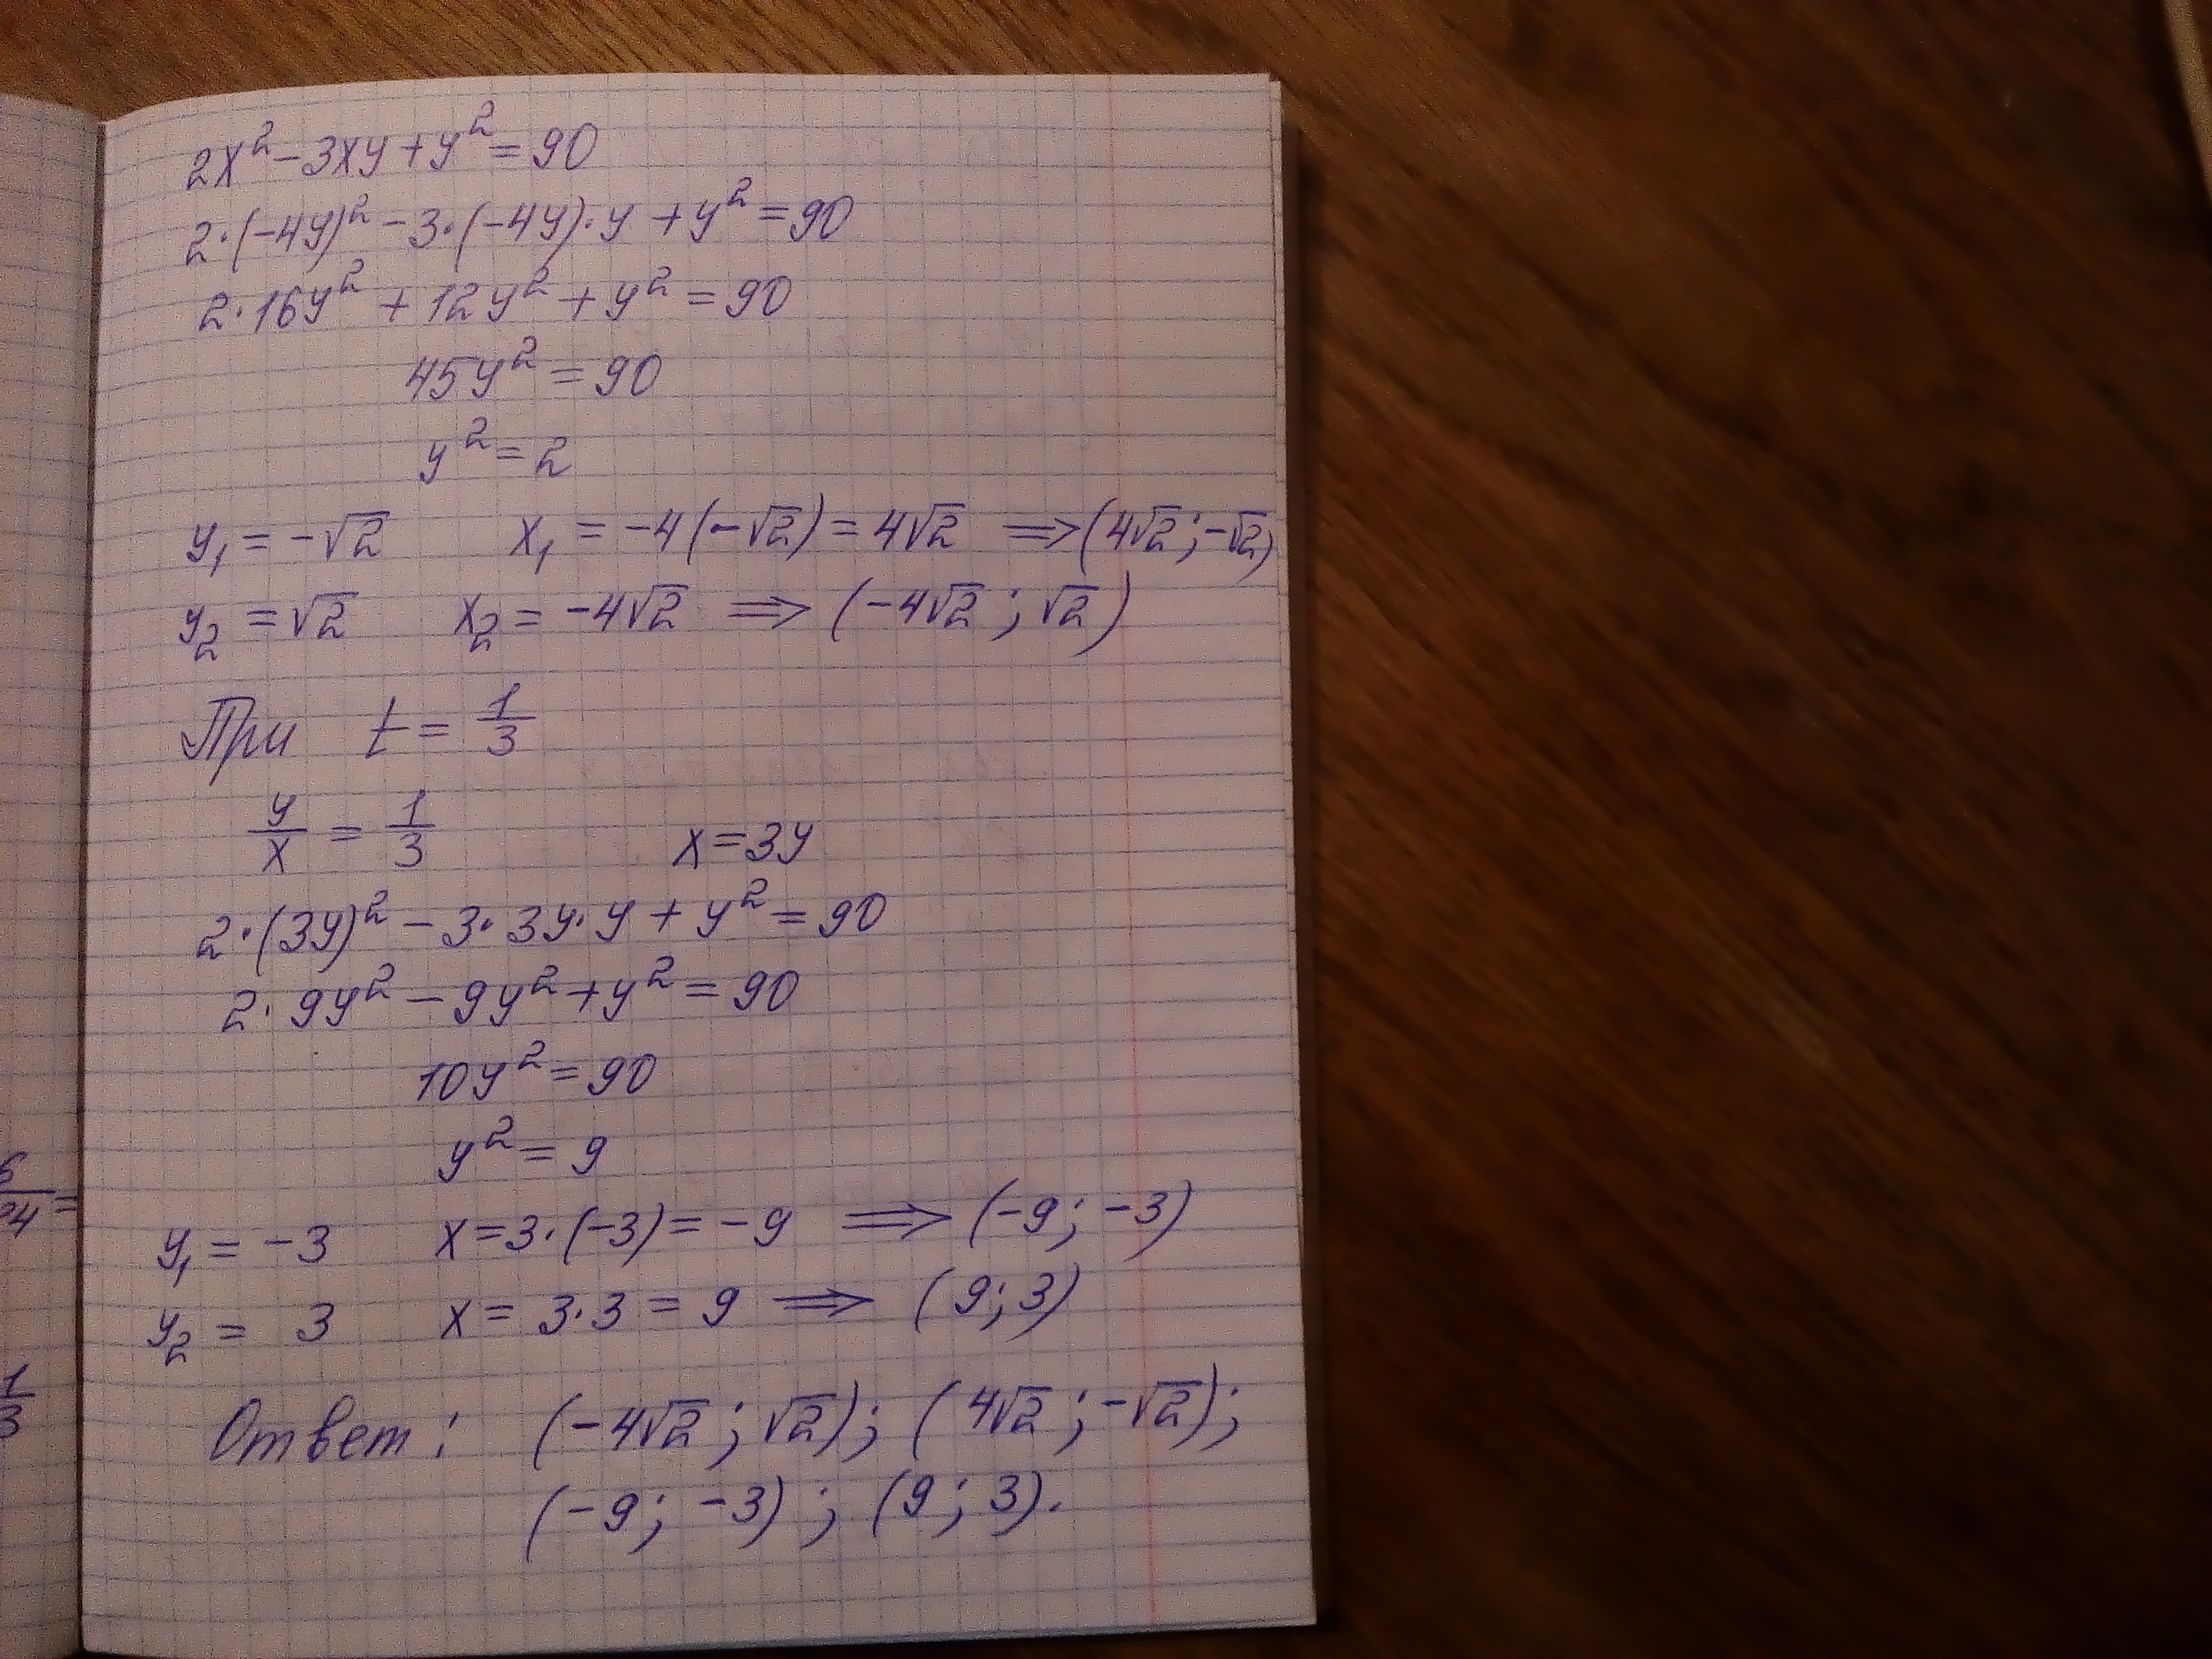 2x² - 3xy + y² = 90
2·(-4y)² - 3·(-4y)·y + y² = 90
2·16y² + 12y² + y² = 90
45y² = 90
y² = 2
y₁ = -√2 x₁ = -4(-√2) = 4√2 ⟹ (4√2; -√2)
y₂ = √2 x₂ = -4√2 ⟹ (-4√2; √2)
При t = 1/3
y/x = 1/3 x = 3y
2·(3y)² - 3·3y·y + y² = 90
2·9y² - 9y² + y² = 90
10y² = 90
y² = 9
y₁ = -3 x = 3·(-3) = -9 ⟹ (-9; -3)
y₂ = 3 x = 3·3 = 9 ⟹ (9; 3)
Ответ: (-4√2; √2); (4√2; -√2);
(-9; -3); (9; 3).
1/3